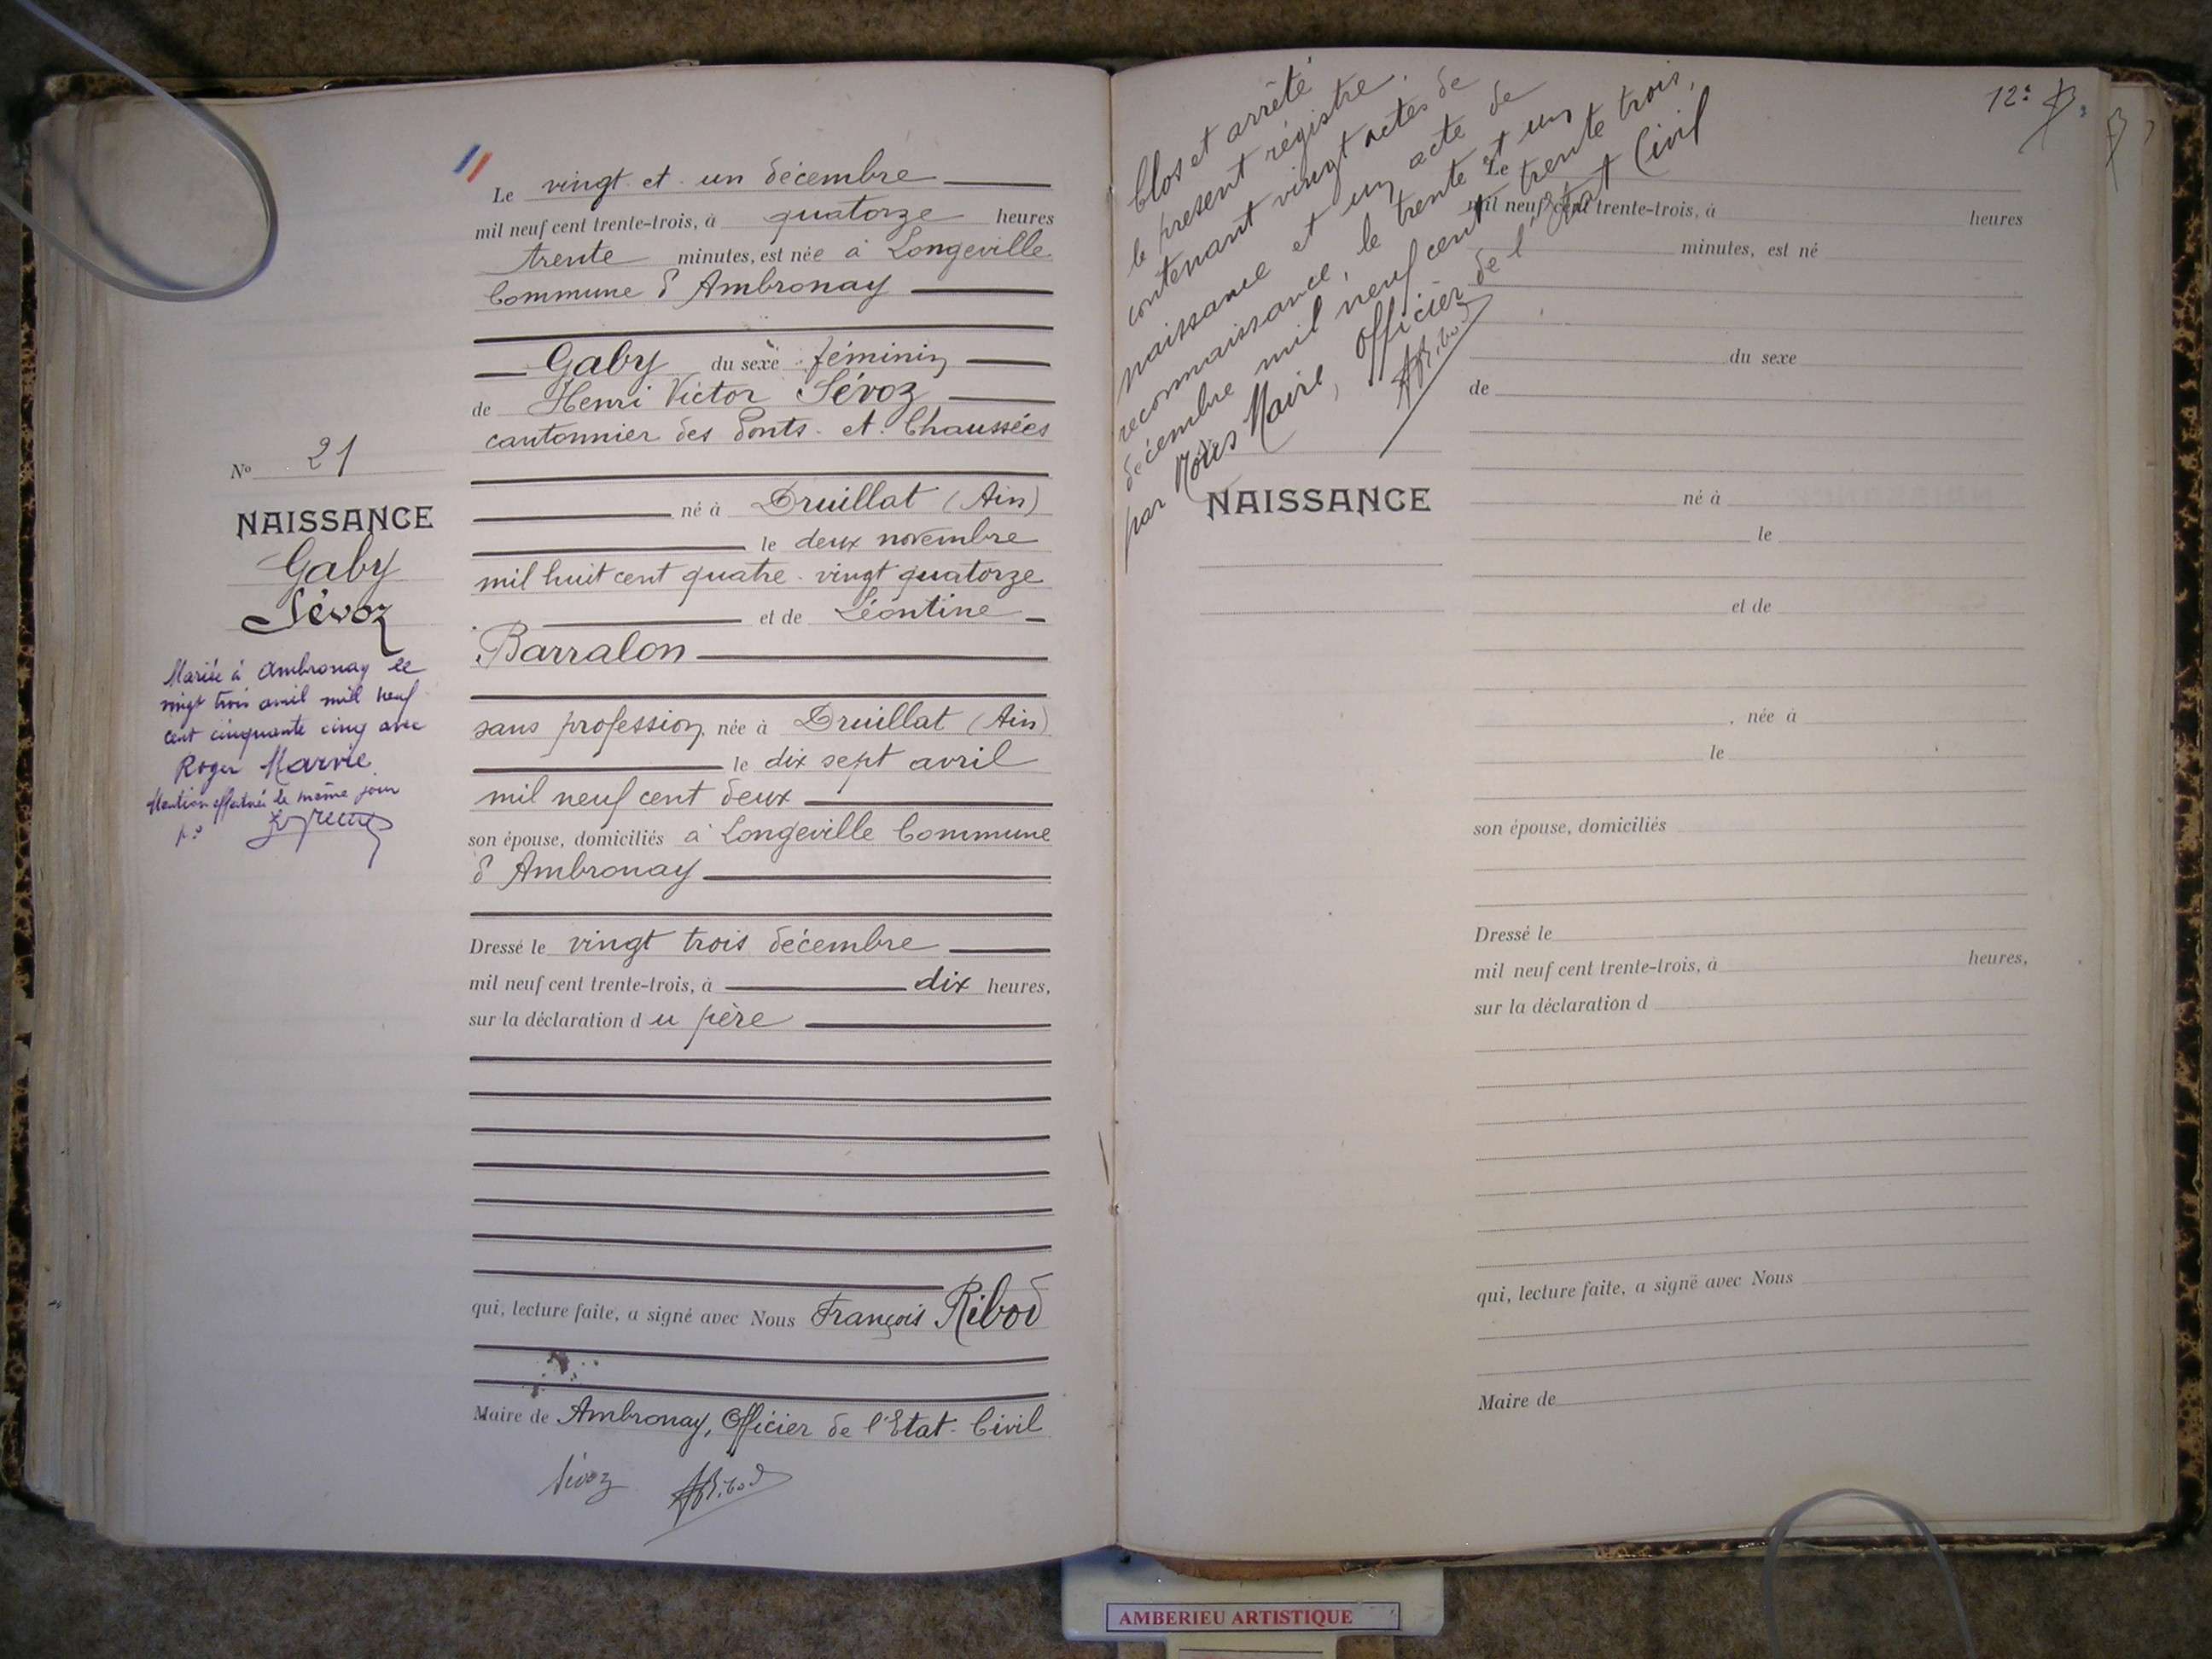 N° 21
NAISSANCE
Gaby
Sévoz
Mariée à Ambronay le
vingt trois avril mil neuf
cent cinquante cinq avec
Roger Marvie
Mention effectuée le même jour
Le vingt et un décembre
mil neuf cent trente-trois, à quatorze heures
trente minutes, est née à Longeville
Commune d'Ambronay
Gaby du sexe féminin
de Henri Victor Sévoz
cantonnier des Ponts et Chaussées
né à Druillat (Ain)
le deux novembre
mil huit cent quatre-vingt quatorze
et de Léontine
Barralon
sans profession, née à Druillat (Ain)
le dix sept avril
mil neuf cent deux
son épouse, domiciliés à Longeville Commune
d'Ambronay
Dressé le vingt trois décembre
mil neuf cent trente-trois, à dix heures,
sur la déclaration du père
qui, lecture faite, a signé avec Nous François Ribod
Maire de Ambronay, Officier de l'Etat-Civil
Sévoz ARibod
Clos et arrêté
le présent régistre.
contenant vingt actes de
naissance et un acte de
reconnaissance, le trente et un
décembre mil neuf cent trente trois,
par Nous Maire, Officier de l'Etat Civil
Ribod
12e
Le
mil neuf cent trente-trois, à heures
minutes, est né
du sexe
de
NAISSANCE
né à
le
et de
, née à
le
son épouse, domiciliés
Dressé le
mil neuf cent trente-trois, à heures,
sur la déclaration d
qui, lecture faite, a signé avec Nous
Maire de
AMBERIEU ARTISTIQUE